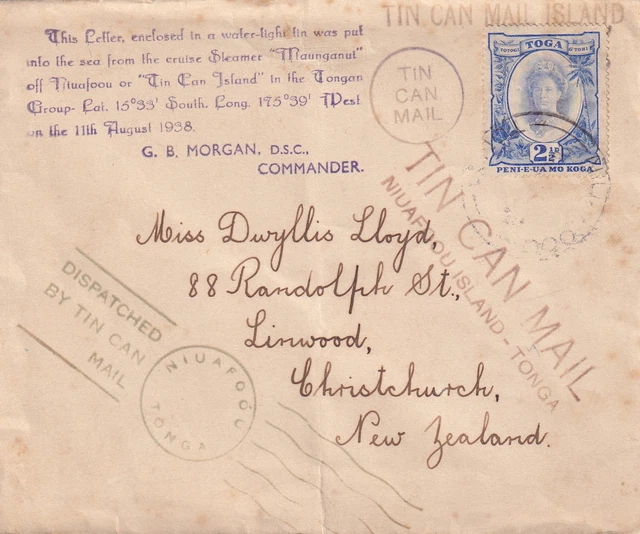 TIN CAN MAIL ISLAND
This Letter, enclosed in a water-tight tin was put
into the sea from the cruise Steamer "Maunganui"
off Niuafoou or "Tin Can Island" in the Tongan
Group- Lat. 15°33' South. Long. 175°39' West
on the 11th August 1938.
G. B. MORGAN, D.S.C.,
COMMANDER.
TIN
CAN
MAIL
TOGA
2½D
PENI-E-UA MO KOGA
TIN CAN MAIL
NIUAFOOU ISLAND - TONGA
Miss Dwyllis Lloyd,
88 Randolph St.,
Linwood,
Christchurch,
New Zealand.
DISPATCHED
BY TIN CAN
MAIL
NIUAFOOU
TONGA